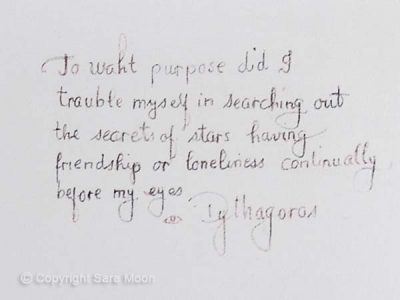 To waht purpose did I
trauble myself in searching out
the secrets of stars having
friendship or loneliness continually
before my eyes
Pythagoras
© Copyright Sara Moon